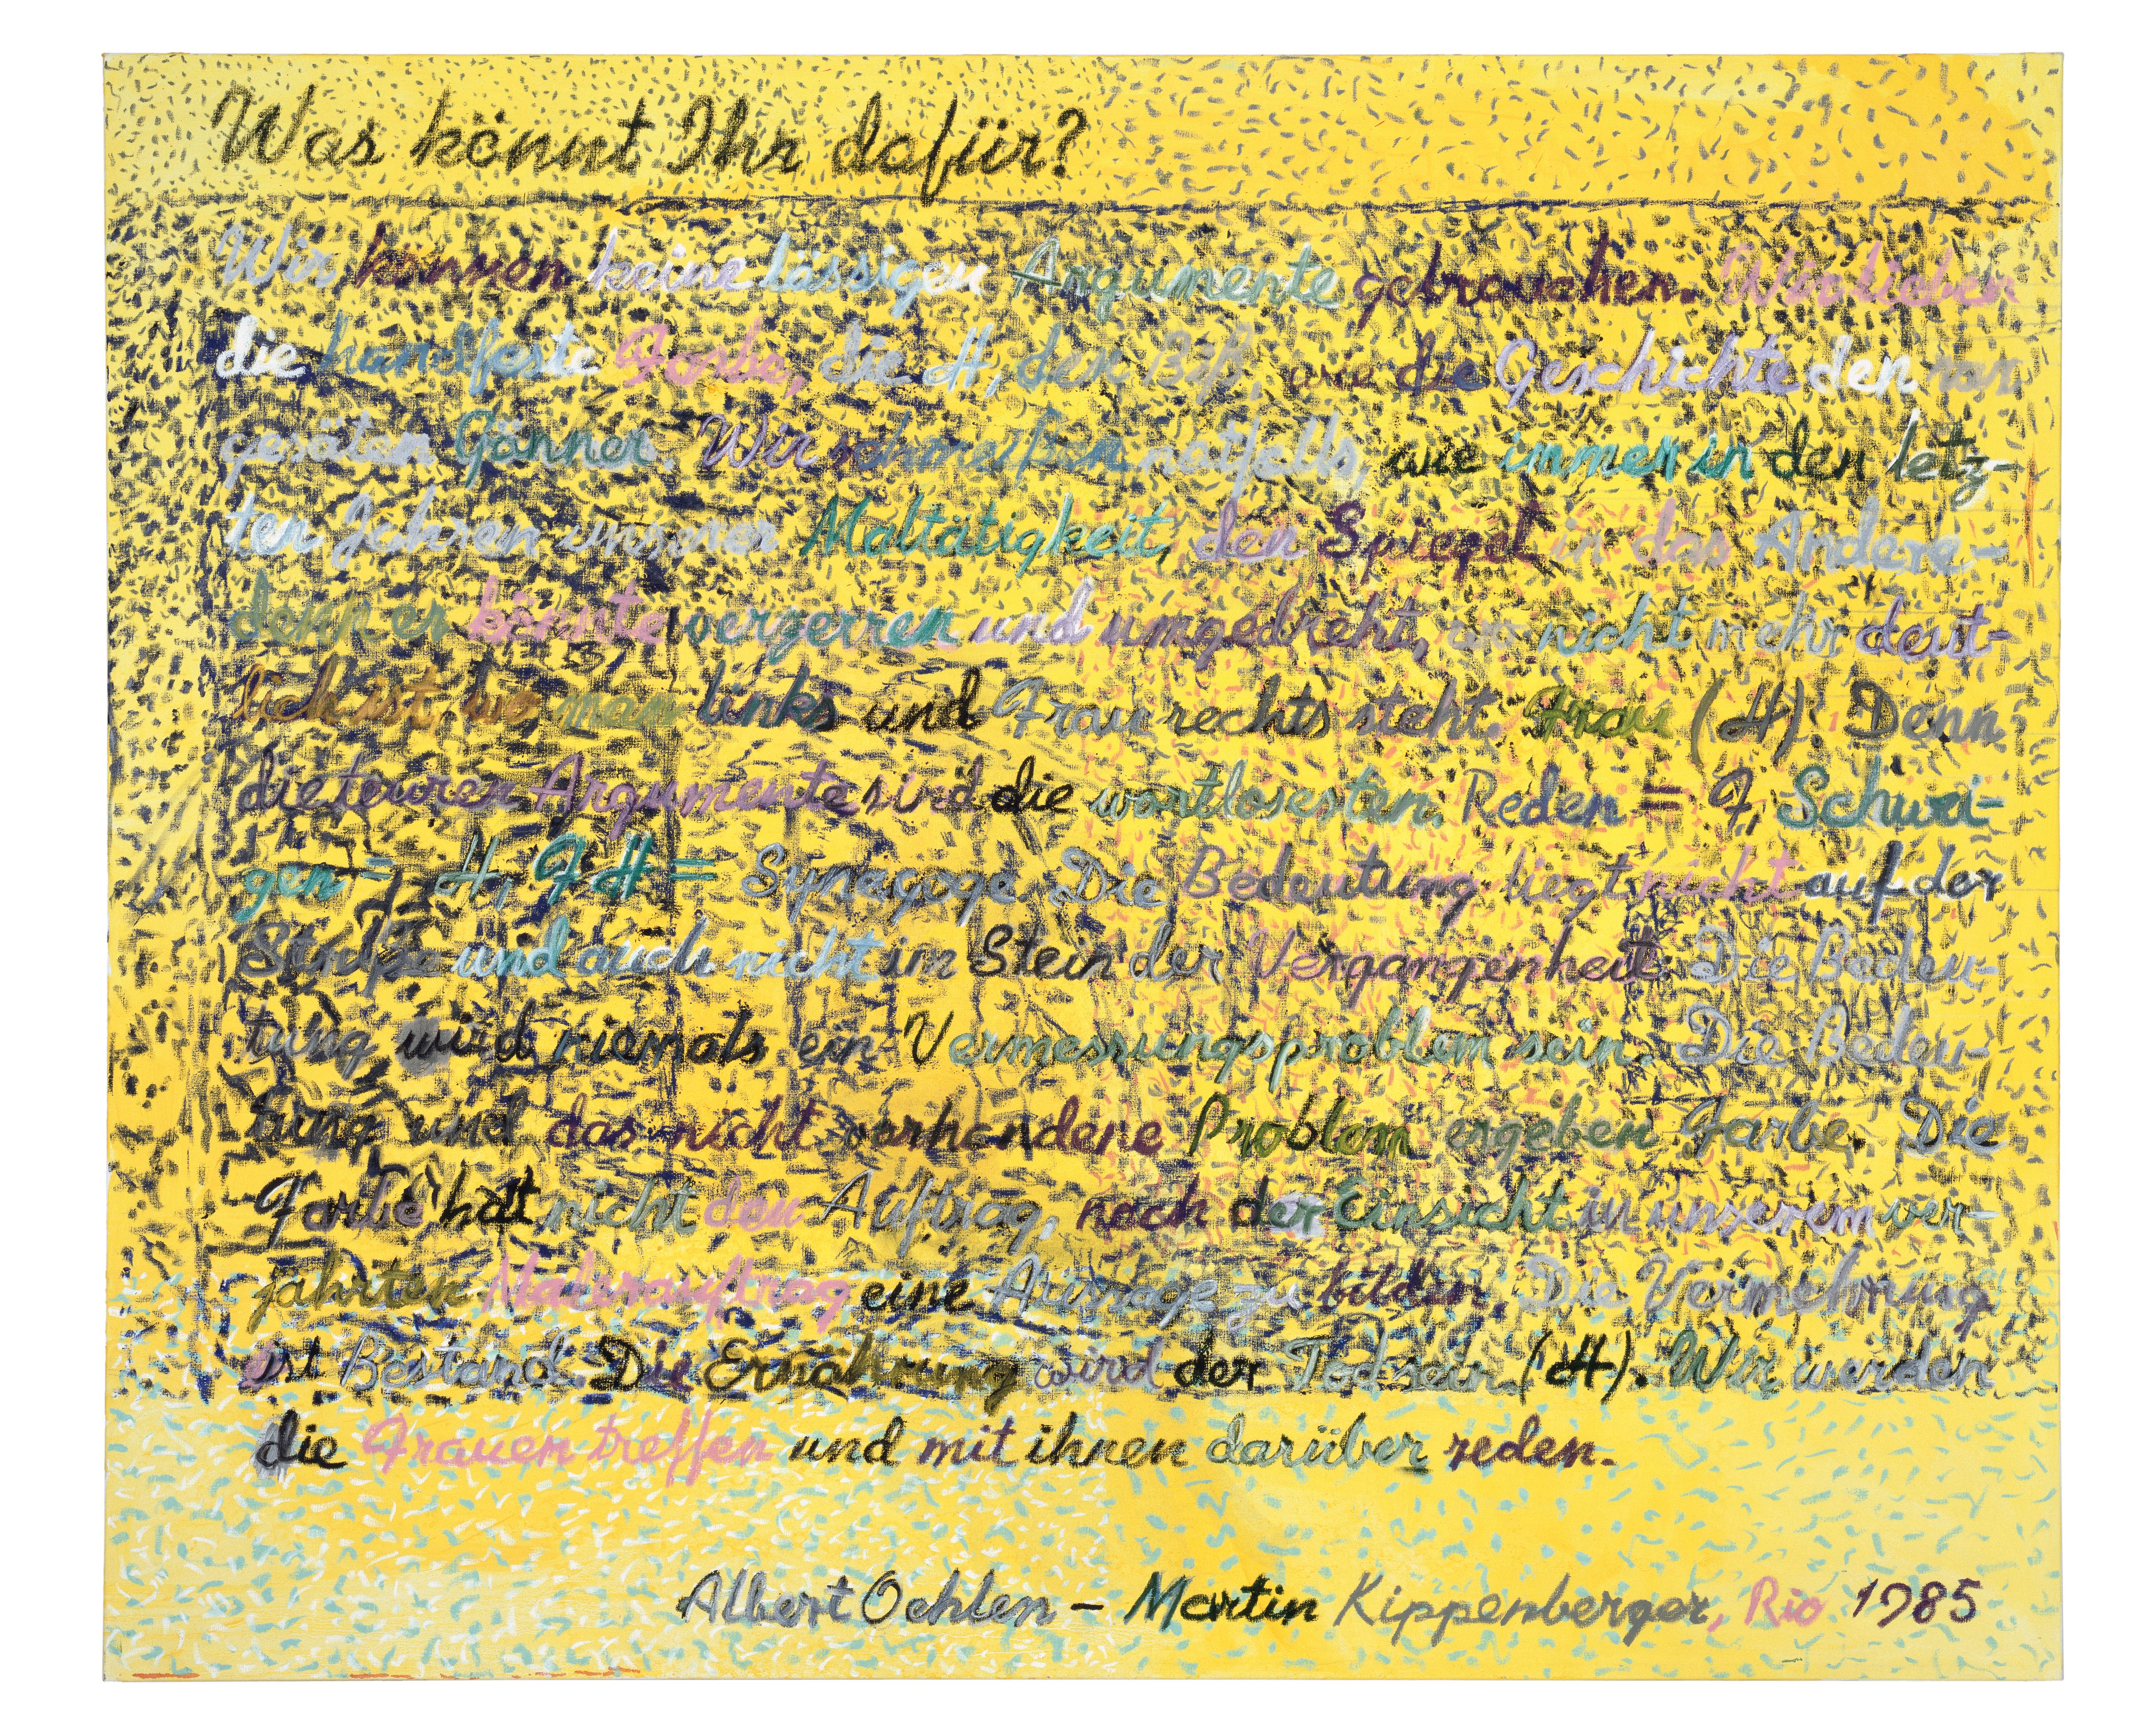 Was könnt Ihr dafür?
Wir können keine lässigen Argumente gebrauchen. Wir lieben
die handfeste Farbe, die H, der wie die Geschichte den rar
gesäten Gönner. Wir schmeißen notfalls, wie immer in den letz-
ten Jahren unserer Maltätigkeit, den Spiegel in das Andere-
denn er könnte verzerren und umgedreht, wo nicht mehr deut-
lich ist, wo man links und Frau rechts steht. Frau (H). Denn
die teuren Argumente sind die wortlosesten. Reden = F, Schwei-
gen = H, FH = Synagoge. Die Bedeutung liegt nicht auf der
und auch nicht im Stein der Vergangenheit. Die Bedeu-
tung wird niemals ein Vermessungsproblem sein. Die Bedeu-
tung und das nicht vorhandene Problem ergeben Farbe. Die
Farbe hat nicht den Auftrag, nach der Einsicht in unserem ver-
jährten Malerauftrag eine Aussage zu bilden. Die Vermehrung
ist Bestand. Die Ernährung wird der Tod sein. (H). Wir werden
die Frauen treffen und mit ihnen darüber reden.
Albert Oehlen – Martin Kippenberger, Rio 1985